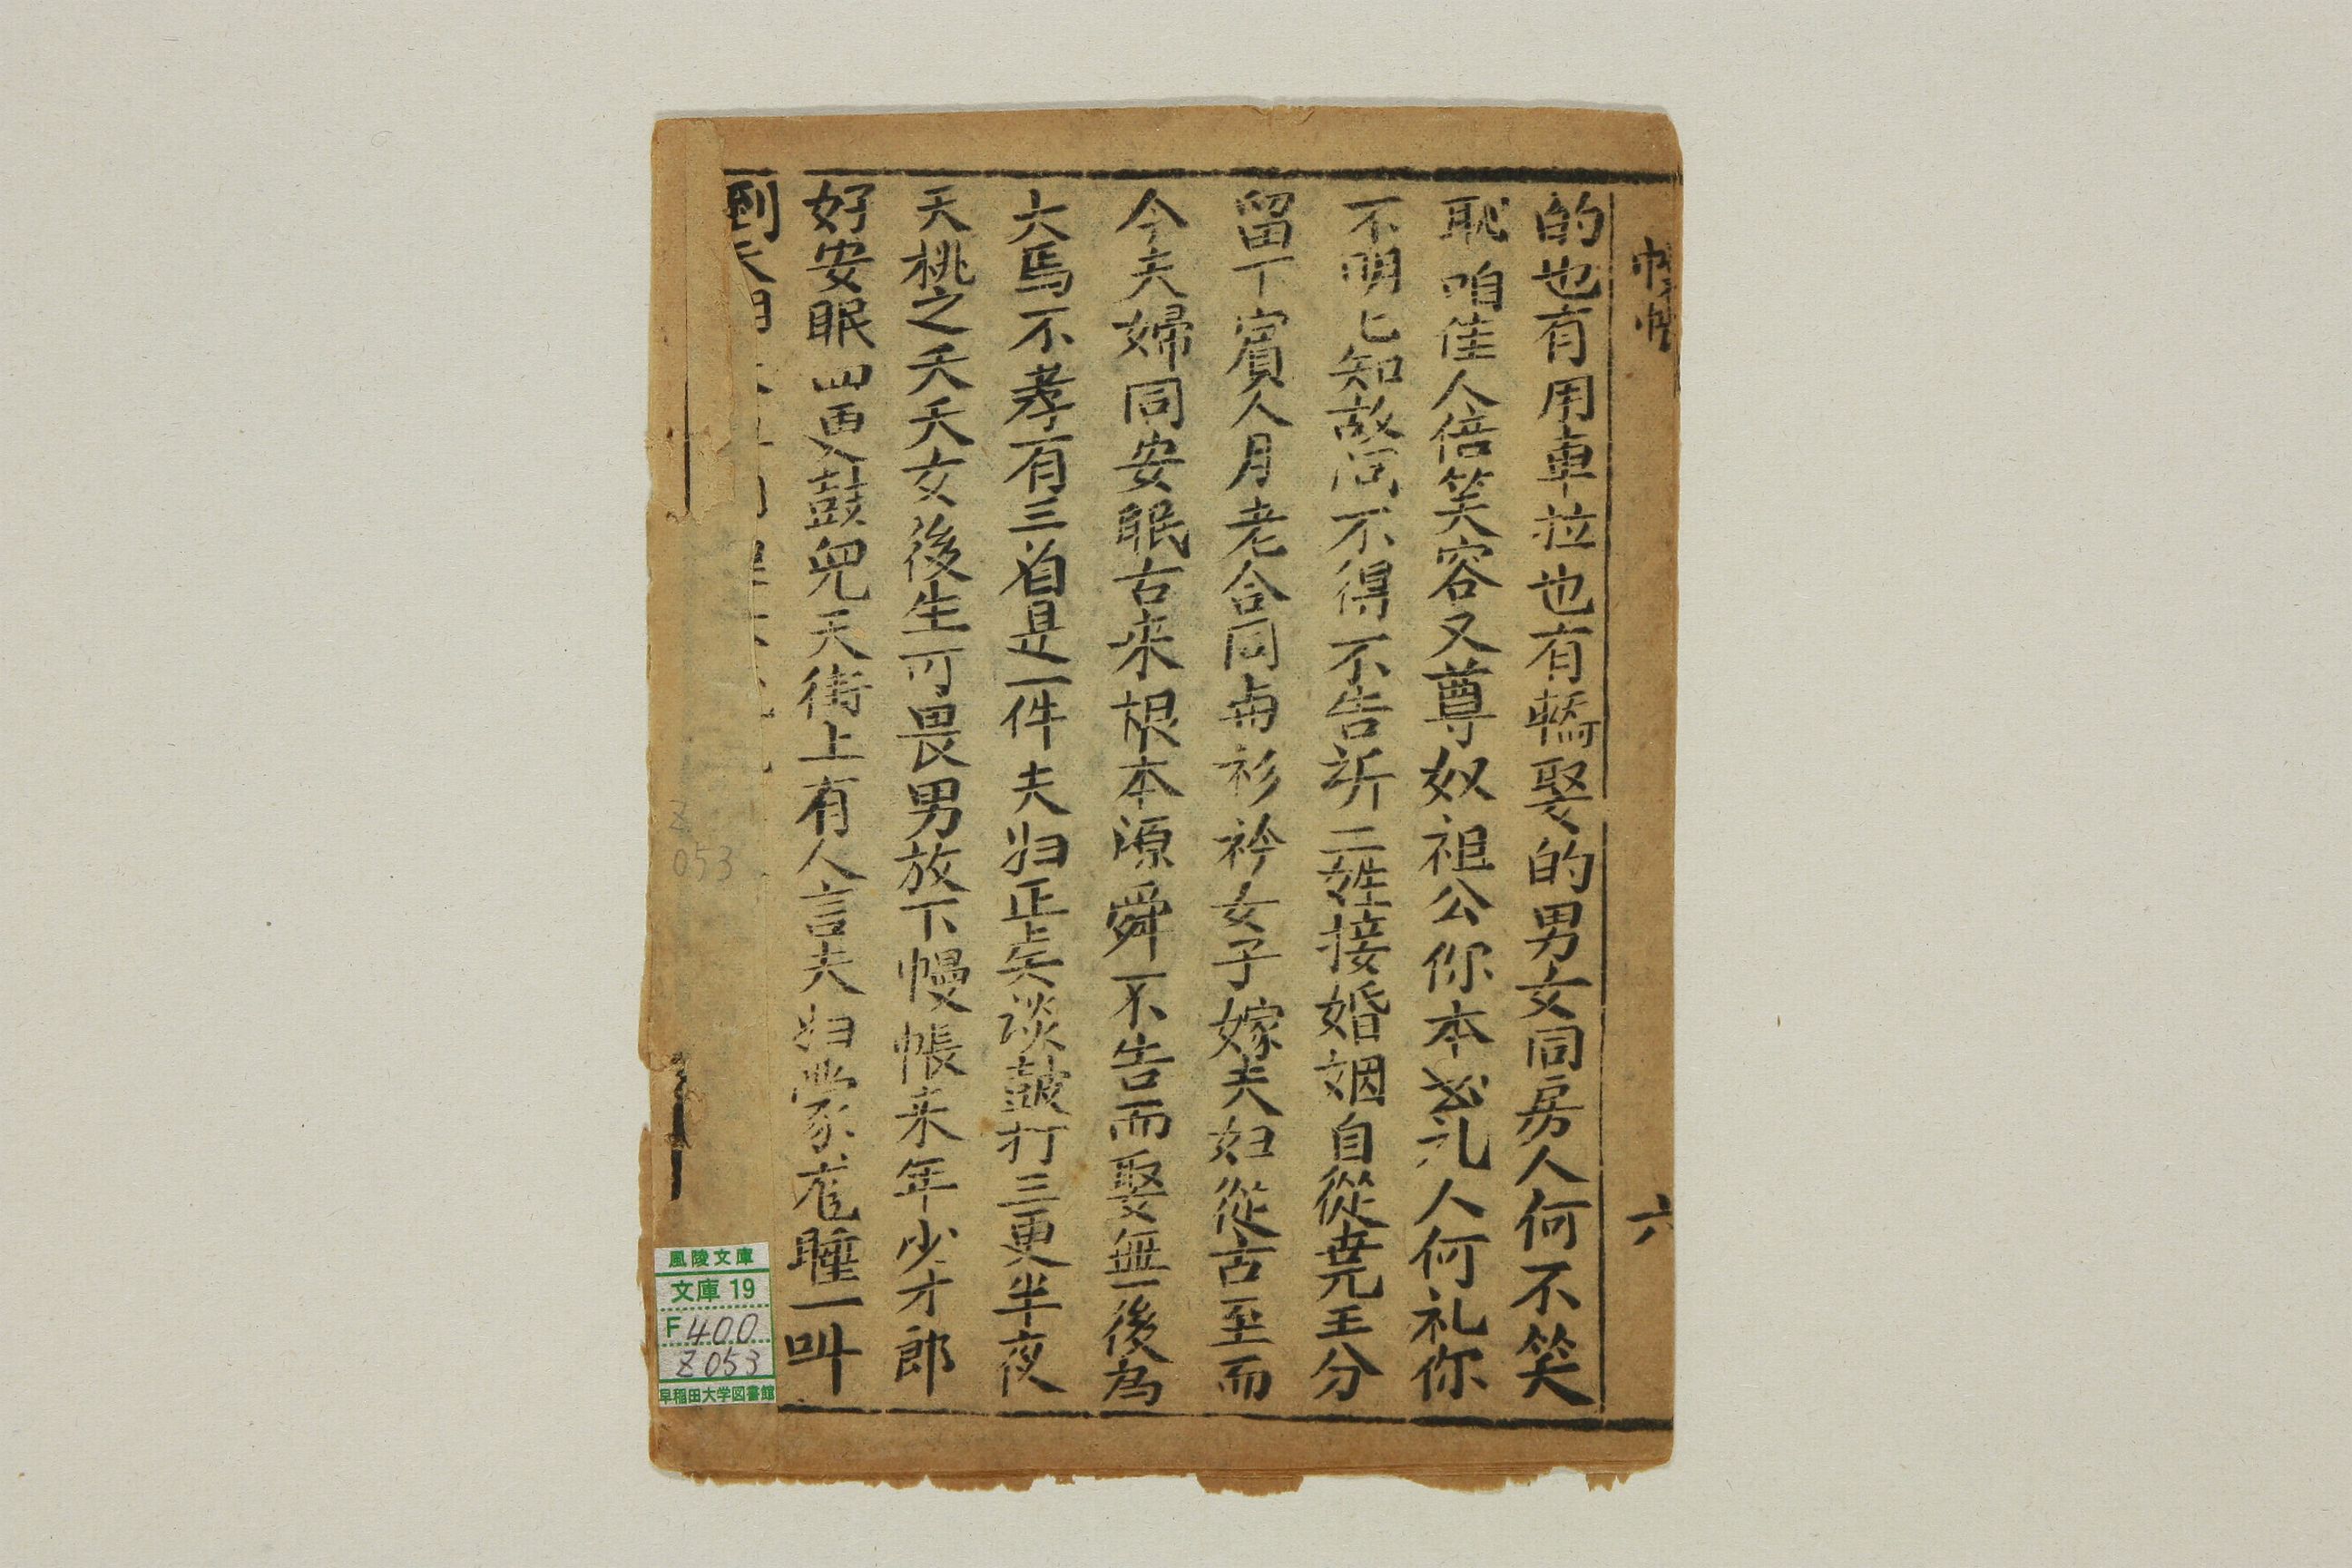 的也有用車拉也有轎娶的男女同房人何不笑
恥咱佳人倍笑容又尊奴祖公你本必礼人何礼你
不明匕知故问不得不告訴二姓接婚姻自從堯王分
留下賓人月老合同両衫衿女子嫁夫妇從古至而
今夫婦同安眠古来根本源舜不告而娶無後為
大焉不孝有三首是一件夫妇正矣谈鼓打三更半夜
天桃之夭夭女後生可畏男放下幔帳来年少才郎
好安眠四更鼓兒天街上有人言夫妇蒙尨睡一叫
到
六
Z
053
風陵文庫
文庫 19
F400
Z053
早稲田大学図書館